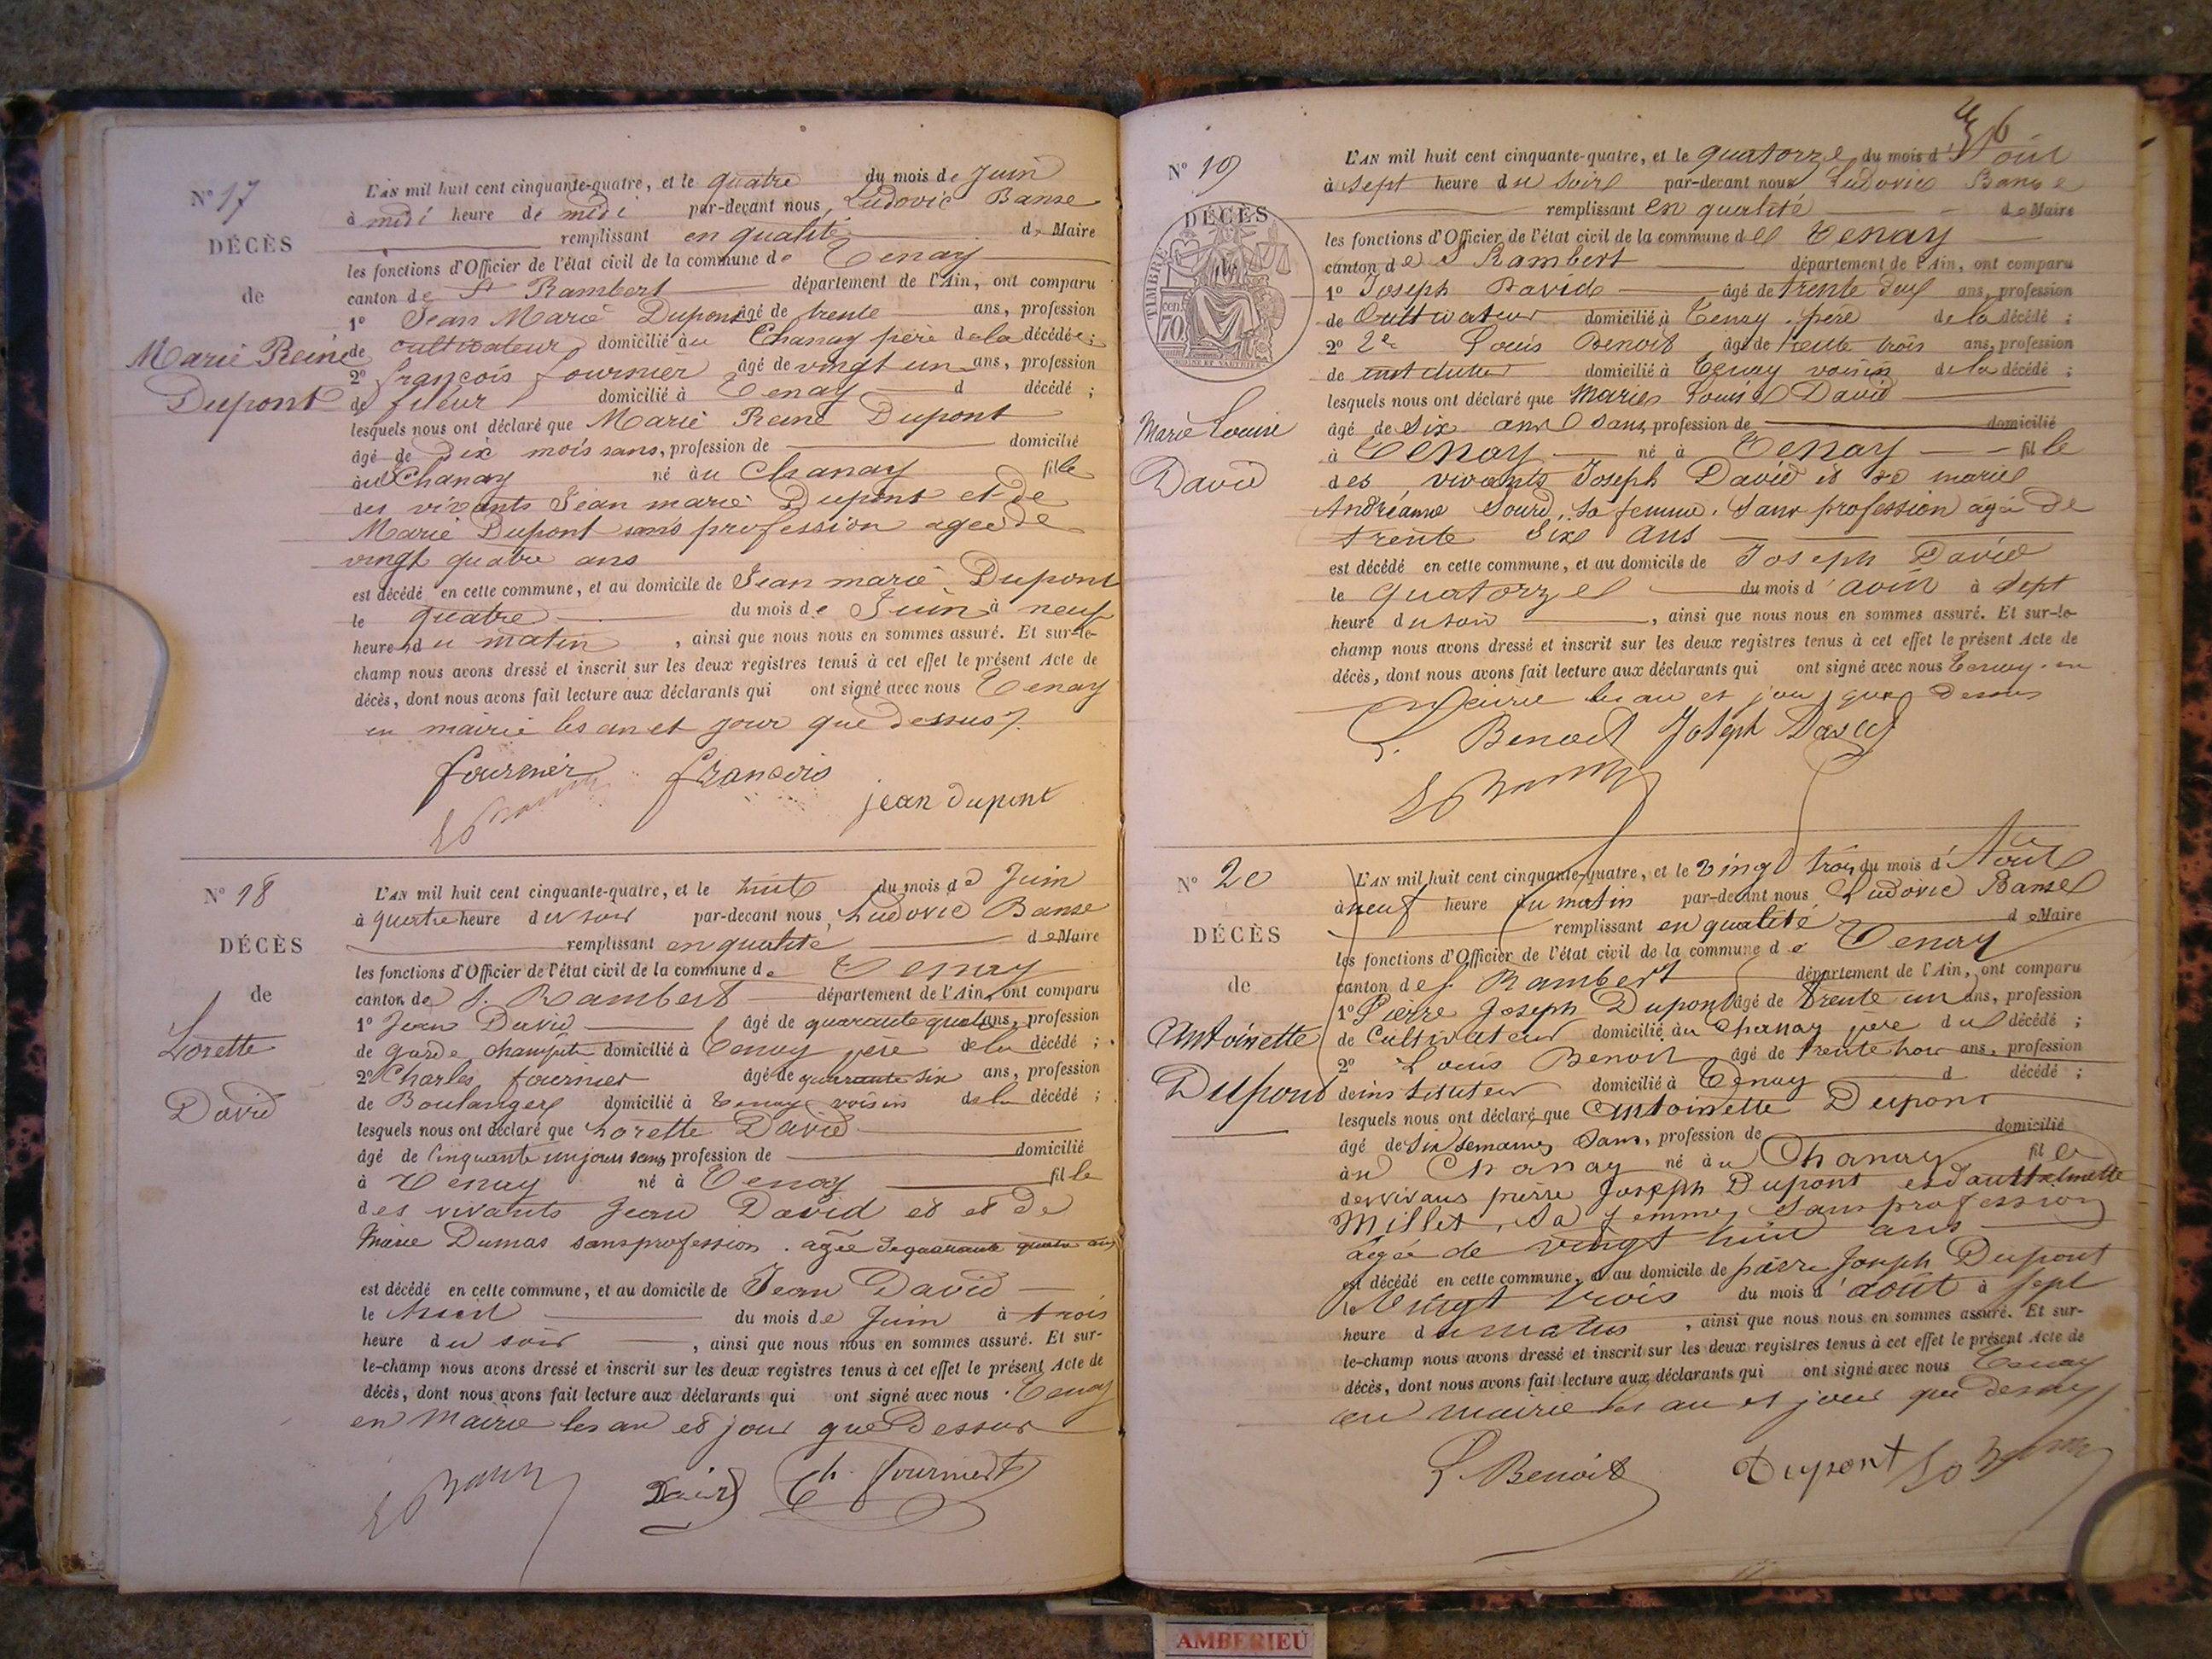 N° 17
DÉCÈS
de
Marie Reine
Dupont
L'AN mil huit cent cinquante-quatre, et le quatre du mois de Juin
à midi heure de midi par-devant nous, Ludovic Banse
remplissant en qualité de Maire
les fonctions d'Officier de l'état civil de la commune de Tenay
canton de St Rambert département de l'Ain, ont comparu
1° Jean Marie Dupont âgé de trente ans, profession
de cultivateur domicilié au Chanay père de la décédée ;
2° françois fournier âgé de vingt un ans, profession
de fileur domicilié à Tenay d décédé ;
lesquels nous ont déclaré que Marie Reine Dupont
âgé de dix mois sans, profession de domicilié
au Chanay né au Chanay fille
des vivants Jean marie Dupont et de
Marie Dupont sans profession agee de
vingt quatre ans
est décédé en cette commune, et au domicile de Jean marie Dupont
le quatre du mois de Juin à neuf
heure du matin, ainsi que nous nous en sommes assuré. Et sur-le-
champ nous avons dressé et inscrit sur les deux registres tenus à cet effet le présent Acte de
décès, dont nous avons fait lecture aux déclarants qui ont signé avec nous Tenay
en mairie les an et jour que dessus
fournier françois
jean dupont
N° 18
DÉCÈS
de
Lorette
David
L'AN mil huit cent cinquante-quatre, et le huit du mois de Juin
à quatre heure du soir par-devant nous, Ludovic Banse
remplissant en qualité de Maire
les fonctions d'Officier de l'état civil de la commune de Tenay
canton de S. Rambert département de l'Ain, ont comparu
1° Jean David âgé de quarante quatre ans, profession
de garde champetre domicilié à Tenay père de la décédé ;
2° Charles fournier âgé de quarante six ans, profession
de Boulanger domicilié à Tenay voisin de la décédé ;
lesquels nous ont déclaré que Lorette David
âgé de Cinquante un jours sans profession de domicilié
à Tenay né à Tenay fille
des vivants Jean David et et de
Marie Dumas sans profession. agée de quarante quatre ans
est décédé en cette commune, et au domicile de Jean David
le huit du mois de Juin à trois
heure du soir, ainsi que nous nous en sommes assuré. Et sur-
le-champ nous avons dressé et inscrit sur les deux registres tenus à cet effet le présent Acte de
décès, dont nous avons fait lecture aux déclarants qui ont signé avec nous. Tenay
en Mairie les an et jour que Dessus
David Ch. fournier
N° 19
DÉCÈS
TIMBRE
70
Marie Louise
David
L'AN mil huit cent cinquante-quatre, et le quatorze du mois d'Aout
à sept heure du soir par-devant nous Ludovic Banse
remplissant en qualité de Maire
les fonctions d'Officier de l'état civil de la commune de Tenay
canton de S Rambert département de l'Ain, ont comparu
1° Joseph David âgé de trente deux ans, profession
de Cultivateur domicilié à Tenay. pere de la décédé ;
2° 2e Louis Benoit âgé de trente trois ans, profession
de instituteur domicilié à Tenay voisin de la décédé ;
lesquels nous ont déclaré que Marie Louise David
âgé de six ans sans profession de domicilié
à Tenay né à Tenay fille
des vivants Joseph David et de marie
Andréanne Sourd, sa femme. Sans profession agée de
trente six ans
est décédé en cette commune, et au domicile de Joseph David
le quatorze du mois d'août à sept
heure du soir, ainsi que nous nous en sommes assuré. Et sur-le-
champ nous avons dressé et inscrit sur les deux registres tenus à cet effet le présent Acte de
décès, dont nous avons fait lecture aux déclarants qui ont signé avec nous Tenay. en
Mairie les an et jour que dessus
L. Benoit Joseph David
N° 20
DÉCÈS
de
Antoinette
Dupont
L'AN mil huit cent cinquante-quatre, et le vingt trois du mois d'Août
à neuf heure du matin par-devant nous Ludovic Banse
remplissant en qualité de Maire
les fonctions d'Officier de l'état civil de la commune de Tenay
canton de S. Rambert département de l'Ain, ont comparu
1° Pierre Joseph Dupont âgé de trente un ans, profession
de Cultivateur domicilié au Chanay père de décédé ;
2° Louis Benoit âgé de trente trois ans, profession
de instituteur domicilié à Tenay d décédé ;
lesquels nous ont déclaré que Antoinette Dupont
âgé de six semaines Sans, profession de domicilié
au Chanay né au Chanay fille
des vivans pierre Joseph Dupont et d'anthelmette
Millet, sa femme, Sans profession
agée de vingt huit ans
est décédé en cette commune, et au domicile de pierre Joseph Dupont
le vingt trois du mois d'août à sept
heure du matin, ainsi que nous nous en sommes assuré. Et sur-
le-champ nous avons dressé et inscrit sur les deux registres tenus à cet effet le présent Acte de
décès, dont nous avons fait lecture aux déclarants qui ont signé avec nous Tenay
en mairie les an et jour que dessus
L. Benoit Dupont
AMBERIEU